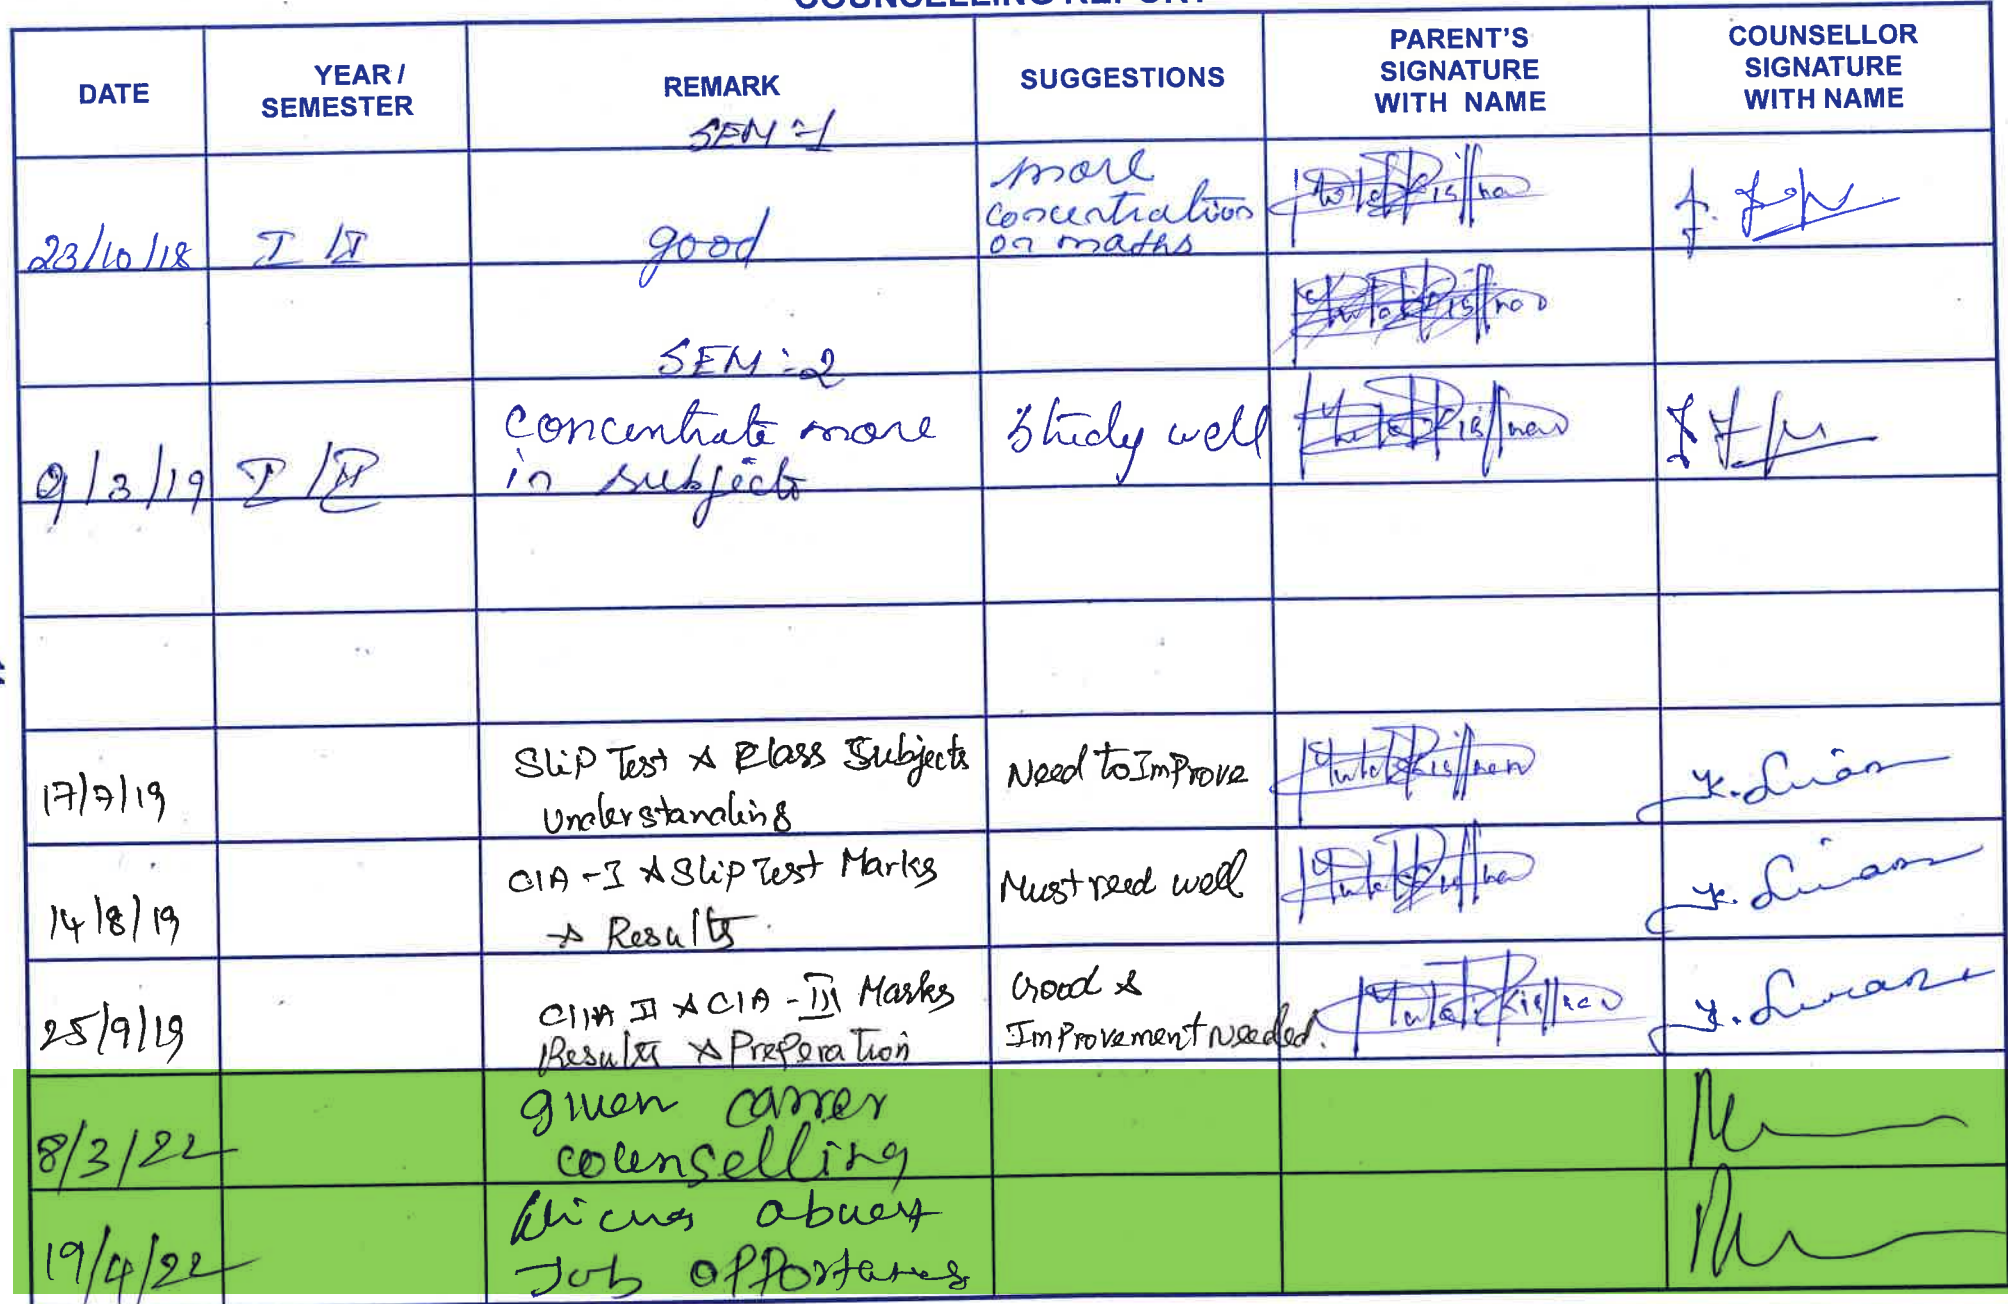 COUNSELLING REPORT
DATE
YEAR /
SEMESTER
REMARK
SUGGESTIONS
PARENT'S
SIGNATURE
WITH NAME
COUNSELLOR
SIGNATURE
WITH NAME
SEM :-1
23/10/18
I / I
good
more
concentration
on maths
SEM :-2
9/3/19
I / II
Concentrate more
in subjects
Study well
17/7/19
Slip Test & Class Subjects
Understanding
Need to Improve
14/8/19
CIA - I & Slip Test Marks
& Results
Must reed well
25/9/19
CIIA II & CIA - III Marks
Results & Preperation
Good &
Improvement Needed.
8/3/22
given carrer
counselling
19/4/22
Job